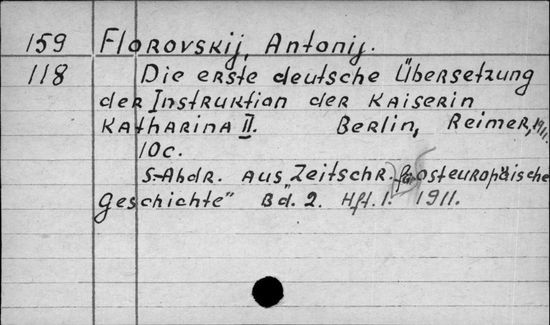 159 Florovskij, Antonij.
118 Die erste deutsche Übersetzung
der Instruktion der Kaiserin
Katharina II. Berlin, Reimer, 1911.
10c.
S-Abdr. aus „Zeitschr. für osteuropäische
Geschichte" Bd. 2. Hft. 1. 1911.